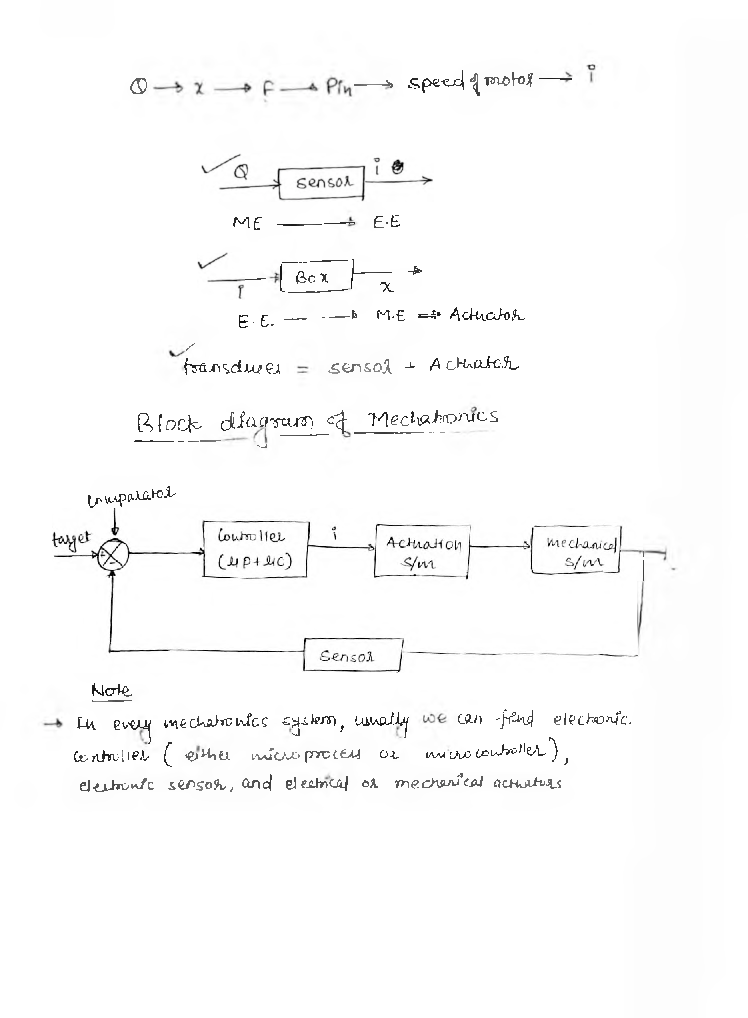 Q → x → F → Pin → speed of motor → i
Q sensor i
ME → E.E
i Box x
E.E. → M.E ⇒ Actuator
transducer = sensor + Actuator
Block diagram of Mechatronics
comparator
target + - Controller (μp + μc) i Actuation s/m mechanical s/m
Sensor
Note
→ In every mechatronics system, usually we can find electronic
controller ( either micro process or microcontroller ),
electronic sensor, and electrical or mechanical actuators